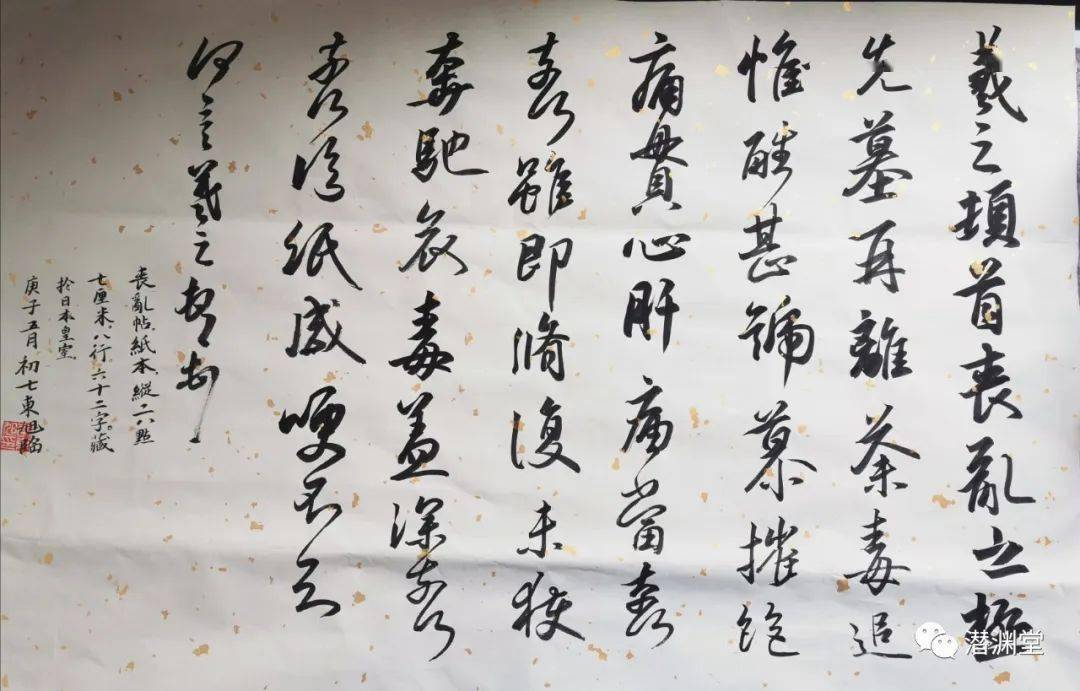 羲之頓首喪亂之極
先墓再離荼毒追
惟酷甚號慕摧絕
痛貫心肝痛當奈
奈何雖即脩復未獲
奔馳哀毒益深奈何
奈何臨紙感哽不知
何言羲之頓首
喪亂帖、紙本、縱二八點
七厘米、八行六十二字。藏
於日本皇室。
庚子五月初七東旭臨
潜渊堂